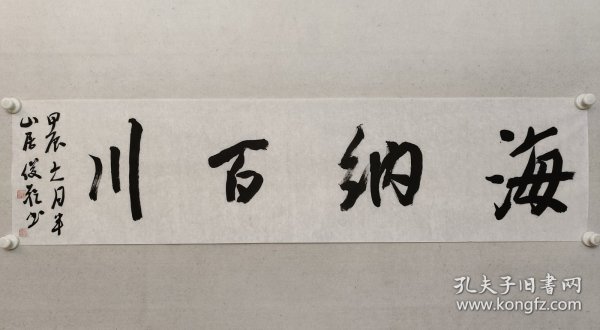 海纳百川
甲辰七月半
山居俊龙书
孔夫子旧书网
www.kongfz.com